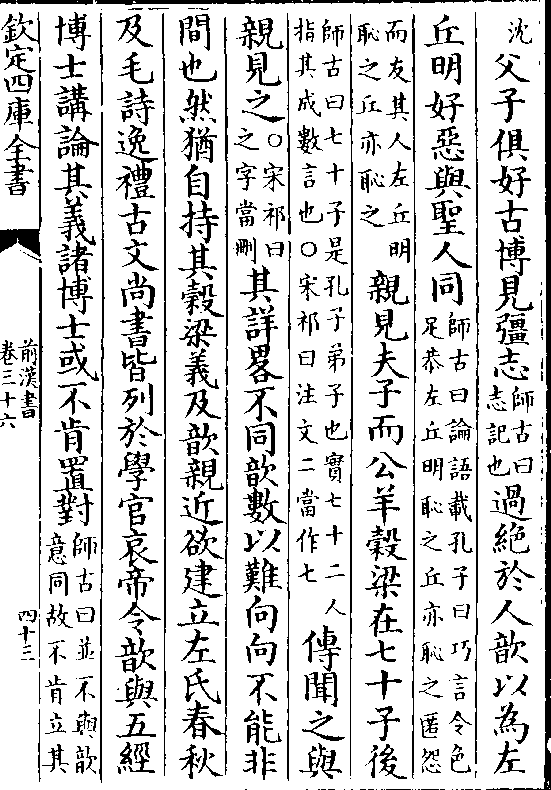 沈父子俱好古博見彊志師古曰志記也過絕於人歆以為左
丘明好惡與聖人同師古曰論語載孔子曰巧言令色足恭左丘明恥之丘亦恥之匿怨
而友其人左丘明恥之丘亦恥之親見夫子而公羊穀梁在七十子後
師古曰七十子是孔子弟子也實七十二人指其成數言也〇宋祁曰注文二當作七傳聞之與
親見之〇宋祁曰之字當刪其詳畧不同歆數以難向向不能非
間也然猶自持其穀梁義及歆親近欲建立左氏春秋
及毛詩逸禮古文尚書皆列於學官哀帝令歆與五經
博士講論其義諸博士或不肯置對師古曰並不與歆意同故不肯立其
欽定四庫全書
前漢書
卷三十六
四十三